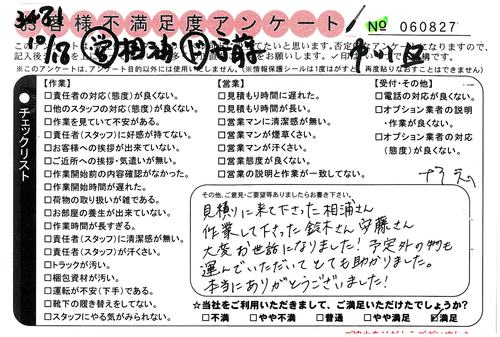 お客様不満足度アンケート
№ 060827
10/18 営 相浦
このアンケート
※このアンケートは、アンケート目的以外には使用いたしません。(※情報保護シールは1度はがすと、再度貼りなおすことはできません)
●チェックリスト
【作業】
□責任者の対応(態度)が良くない。
□他のスタッフの対応(態度)が良くない。
□作業を見ていて不安がある。
□責任者(スタッフ)に好感が持てない。
□お客様への挨拶が出来ていない。
□ご近所への挨拶・気遣いが無い。
□作業開始前の内容確認がなかった。
□作業開始時間が遅れた。
□荷物の取り扱いが雑である。
□お部屋の養生が出来ていない。
□作業時間が長すぎる。
□責任者(スタッフ)に清潔感が無い。
□責任者(スタッフ)が汗くさい。
□トラックが汚い。
□梱包資材が汚い。
□運転が不安(下手)である。
□靴下の履き替えをしてない。
□スタッフにやる気がみられない。
【営業】
□見積もり時間に遅れた。
□見積もり時間が長い。
□営業マンに清潔感が無い。
□営業マンが煙草くさい。
□営業マンが汗くさい。
□営業態度が良くない。
□営業の説明と作業が一致してない。
【受付・その他】
□電話の対応が良くない。
□オプション業者の説明
・作業が良くない。
□オプション業者の対応
(態度)が良くない。
その他、ご意見・ご要望等ありましたらお書き下さい。
見積りに来て下さった相浦さん
作業して下さった鈴木さん 安藤さん
大変お世話になりました!予定外の物も
運んでいただいてとても助かりました。
本当にありがとうございました!
☆当社をご利用いただきまして、ご満足いただけたでしょうか?
□不満 □やや不満 □普通 □やや満足 ☑満足